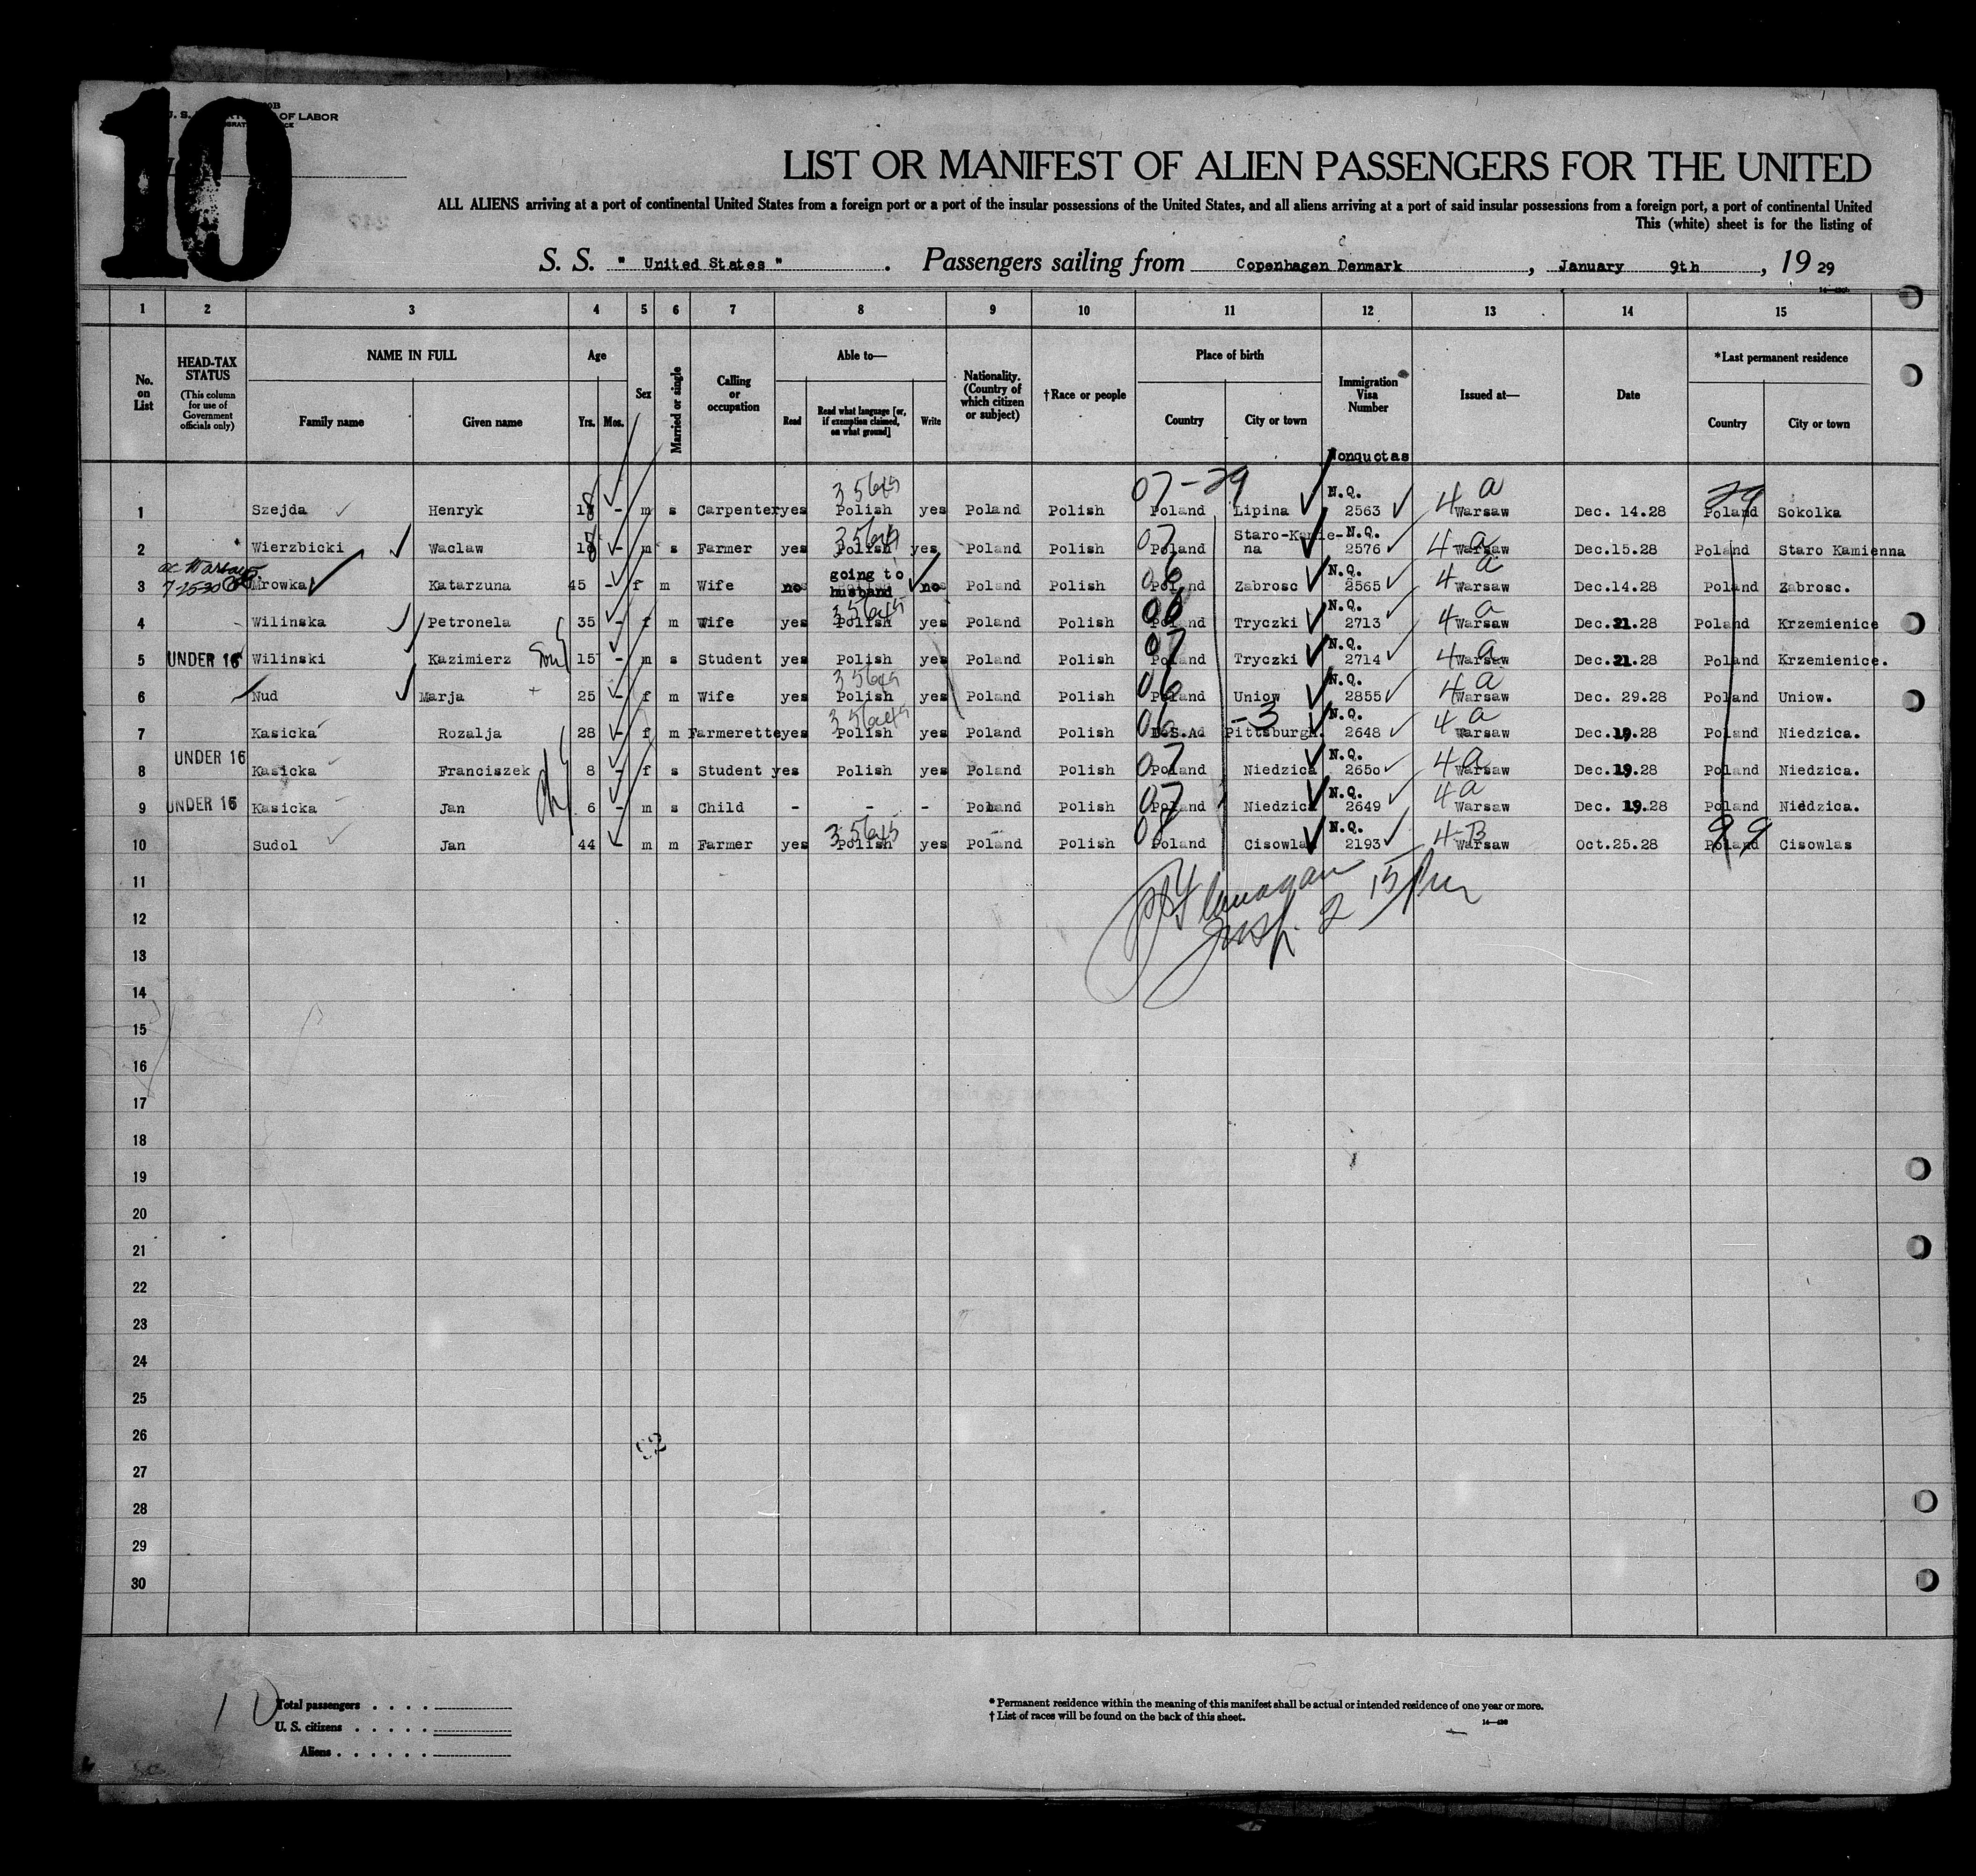 10
U. S. OF LABOR
LIST OR MANIFEST OF ALIEN PASSENGERS FOR THE UNITED
ALL ALIENS arriving at a port of continental United States from a foreign port or a port of the insular possessions of the United States, and all aliens arriving at a port of said insular possessions from a foreign port, a port of continental United
This (white) sheet is for the listing of
S. S. " United States " . Passengers sailing from Copenhagen Denmark , January 9th , 19 29
1 2 3 4 5 6 7 8 9 10 11 12 13 14 15
No. on List HEAD-TAX STATUS (This column for use of Government officials only) NAME IN FULL Family name Given name Age Yrs. Mos. Sex Married or single Calling or occupation Able to— Read Read what language [or, if exemption claimed, on what ground] Write Nationality. (Country of which citizen or subject) †Race or people Place of birth Country City or town Immigration Visa Number Issued at— Date *Last permanent residence Country City or town
Nonquotas
1 Szejda Henryk 18 m s Carpenter yes Polish yes Poland Polish Poland Lipina N.Q. 2563 4 a Warsaw Dec. 14.28 Poland Sokolka
2 Wierzbicki Waclaw 18 - m s Farmer yes Polish yes Poland Polish Poland Staro-Kamie-na N.Q. 2576 4 a Warsaw Dec.15.28 Poland Staro Kamienna
3 Mrowka Katarzuna 45 - f m Wife no going to husband no Poland Polish Poland Zabrosc N.Q. 2565 4 a Warsaw Dec.14.28 Poland Zabrosc.
4 Wilinska Petronela 35 - f m Wife yes Polish yes Poland Polish Poland Tryczki N.Q. 2713 4 a Warsaw Dec.21.28 Poland Krzemienice
5 UNDER 16 Wilinski Kazimierz Son 15 - m s Student yes Polish yes Poland Polish Poland Tryczki N.Q. 2714 4 a Warsaw Dec.21.28 Poland Krzemienice.
6 Nud Marja 25 - f m Wife yes Polish yes Poland Polish Poland Uniow N.Q. 2855 4 a Warsaw Dec. 29.28 Poland Uniow.
7 Kasicka Rozalja 28 - f m Farmerette yes Polish yes Poland Polish U.S.A. Pittsburgh. N.Q. 2648 4 a Warsaw Dec.19.28 Poland Niedzica.
8 UNDER 16 Kasicka Franciszek 8 - f s Student yes Polish yes Poland Polish Poland Niedzica N.Q. 2650 4 a Warsaw Dec.19.28 Poland Niedzica.
9 UNDER 16 Kasicka Jan 6 - m s Child - - - Poland Polish Poland Niedzica N.Q. 2649 4 a Warsaw Dec. 19.28 Poland Niedzica.
10 Sudol Jan 44 m m Farmer yes Polish yes Poland Polish Poland Cisowla N.Q. 2193 4-B Warsaw Oct.25.28 Poland Cisowlas
11
12
13
14
15
16
17
18
19
20
21
22
23
24
25
26
27
28
29
30
Total passengers . . . .
U. S. citizens . . . . .
Aliens . . . . . .
* Permanent residence within the meaning of this manifest shall be actual or intended residence of one year or more.
† List of races will be found on the back of this sheet.